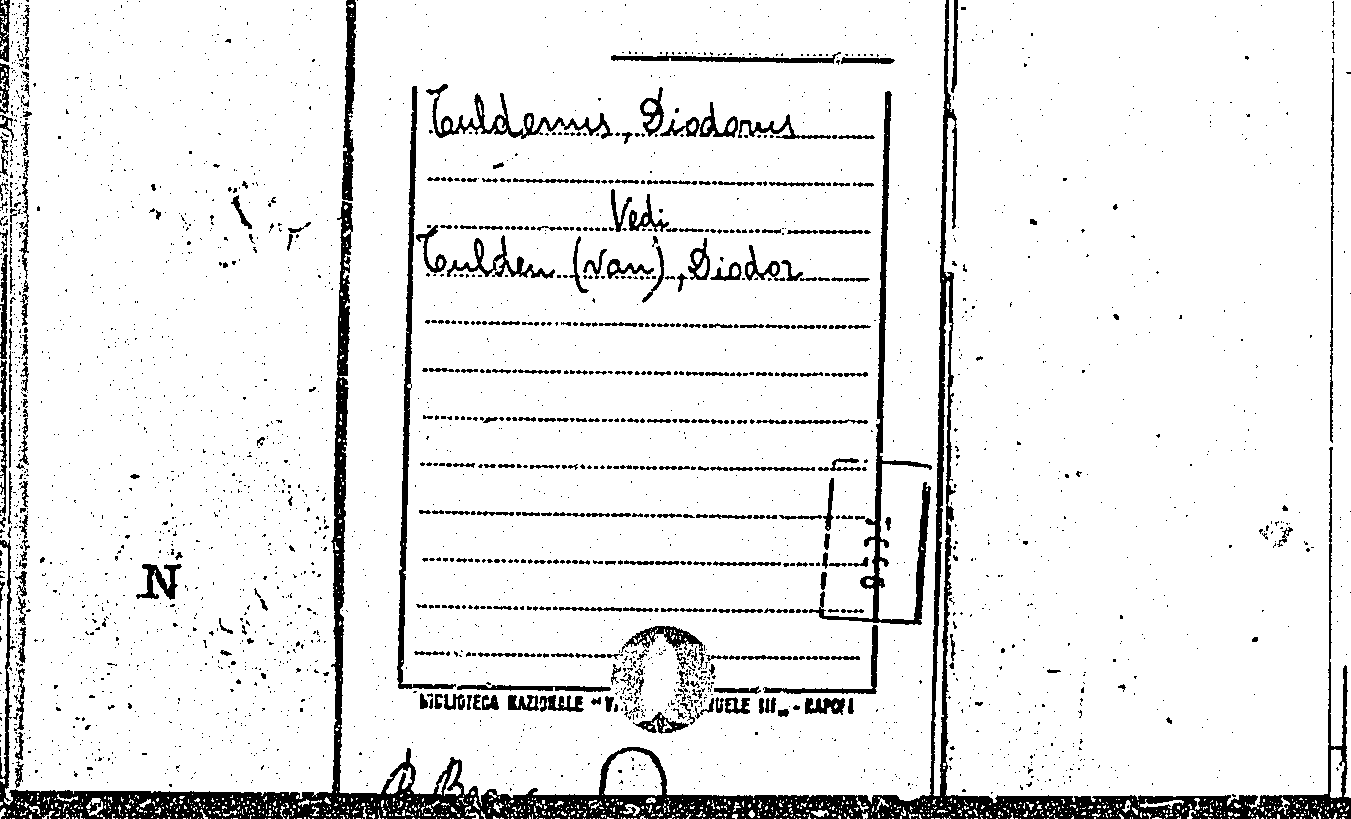 Tuldenus, Diodorus
Vedi
Tulden (van), Diodor
N
BIBLIOTECA NAZIONALE "V. UELE III" - NAPOLI